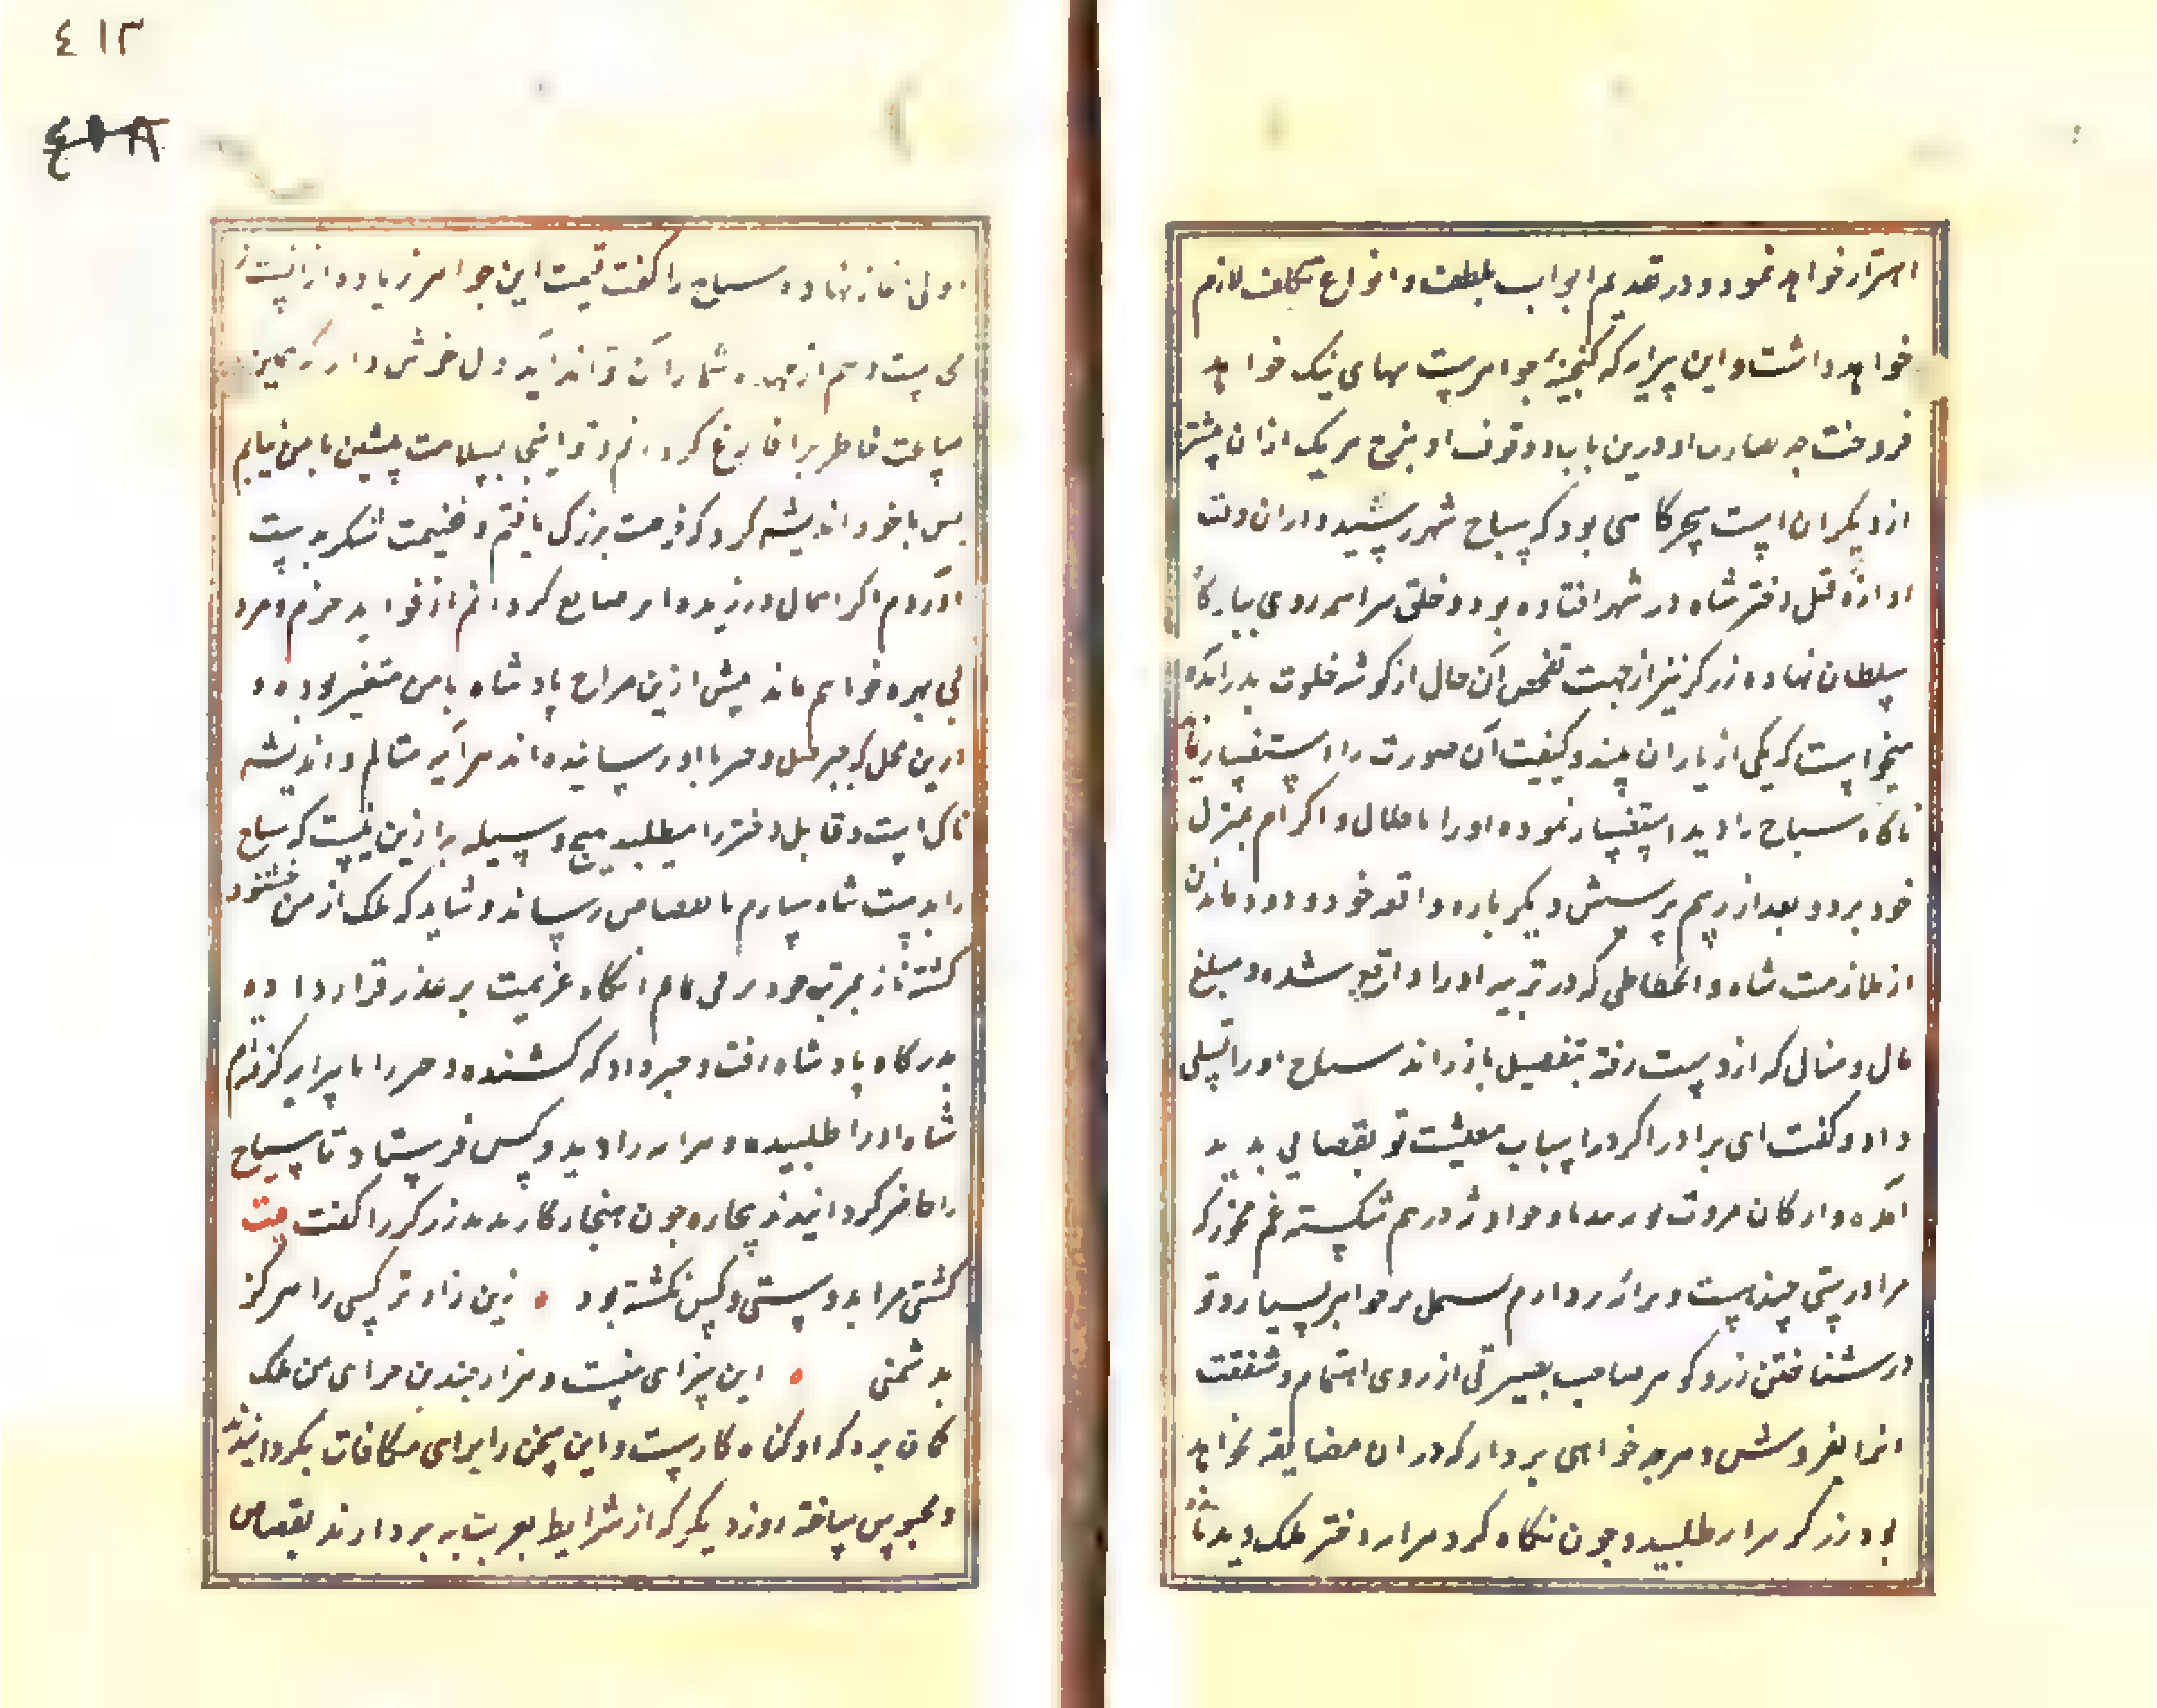 اهتزاز خواهد نمود و در تقدیم ابواب تلطف و انواع تکلف لازم
خواهد داشت و این پیرایه که گنجینهٔ جواهرست ببهای نیک خواهد
فروخت چه مهارت او درین باب و وقوف او بنرخ هر یک ازان بیشتر
از دیگران است سحرگاهی بود که سیاح بشهر رسید و دران وقت
آوازهٔ قتل دختر شاه در شهر افتاده بود و خلق سراسر روی ببارگاه
سلطان نهاده زرگر نیز از جهت تفحص آن حال از گوشه خلوت بدر آمده
میخواست که یکی از یاران بیند و کیفیت آن صورت را استفسار نماید
ناگاه سیاح را دید استفسار نموده او را باجلال و اکرام بمنزل
خود برد و بعد از رسم پرسش دیگر باره واقعه خود و دور ماندن
از ملازمت شاه و انحطاطی که در مرتبه او را واقع شده و مبلغ
مال و منال که از دست رفته بتفصیل باز راند سیاح او را تسلی
داد و گفت ای برادر اگر در اسباب معیشت تو نقصانی پدید
آمده و ارکان مروت بصدمات حوادث درهم شکسته غم مخور که
مرا درستی چندست و پیرایه دارم مشتمل بر جواهر بسیار و تو
در شناختن زر و گوهر صاحب بصیرتی از روی اهتمام و شفقت
انرا بفروش و هرچه خواهی بردار که دران مضایقه نخواهد
بود زرگر پیرایه طلبید و چون نگاه کرد پیرایه دختر ملک دید
آغاز نهاده سیاح را گفت قیمت این جواهر زیاده ازانست
شمارا دل خوش دار که همین
ساعت خاطر ترا فارغ گردانم و تو اینجا بسلامت بنشین تا من بیایم
پس با خود اندیشه کرد که فرصت بزرگ یافتم و غنیمت شگرف بدست
آوردم اگر اهمال ورزیده ضایع گردانم از فواید حزم و خرد
بی بهره خواهم ماند پیش ازین مزاج پادشاه با من متغیر بوده و
درین محل که خبر قتل دختر باو رسانیده اند هرآینه متألم و اندیشه
ناک است و قاتل دختر را میطلبد هیچ وسیله به ازین نیست که سیاح
را بدست شاه سپارم تا بقصاص رساند و شاید که ملک از من خشنود
گشته باز بمرتبه خود ترقی یابم آنگاه عزیمت بر غدر قرار داده
بدرگاه پادشاه رفت و خبر داد که کشنده دختر را با پیرایه گرفته‌ام
شاه او را طلبیده و پیرایه را دید و کس فرستاد تا سیاح
را حاضر گردانیدند بیچاره چون هنجار کار بدید زرگر را گفت بیت
کشتی مرا بدوستی و کس نکشته بود ٥ زین زارتر کسی را هرگز
بدشمنی ٥ این سزای منست و هزار چندین جزای من ملک
گمان برد که او گناه کارست و این سخن را برای مکافات
و محبوس ساخته روز دیگر که از شرایط بردارند بقصاص